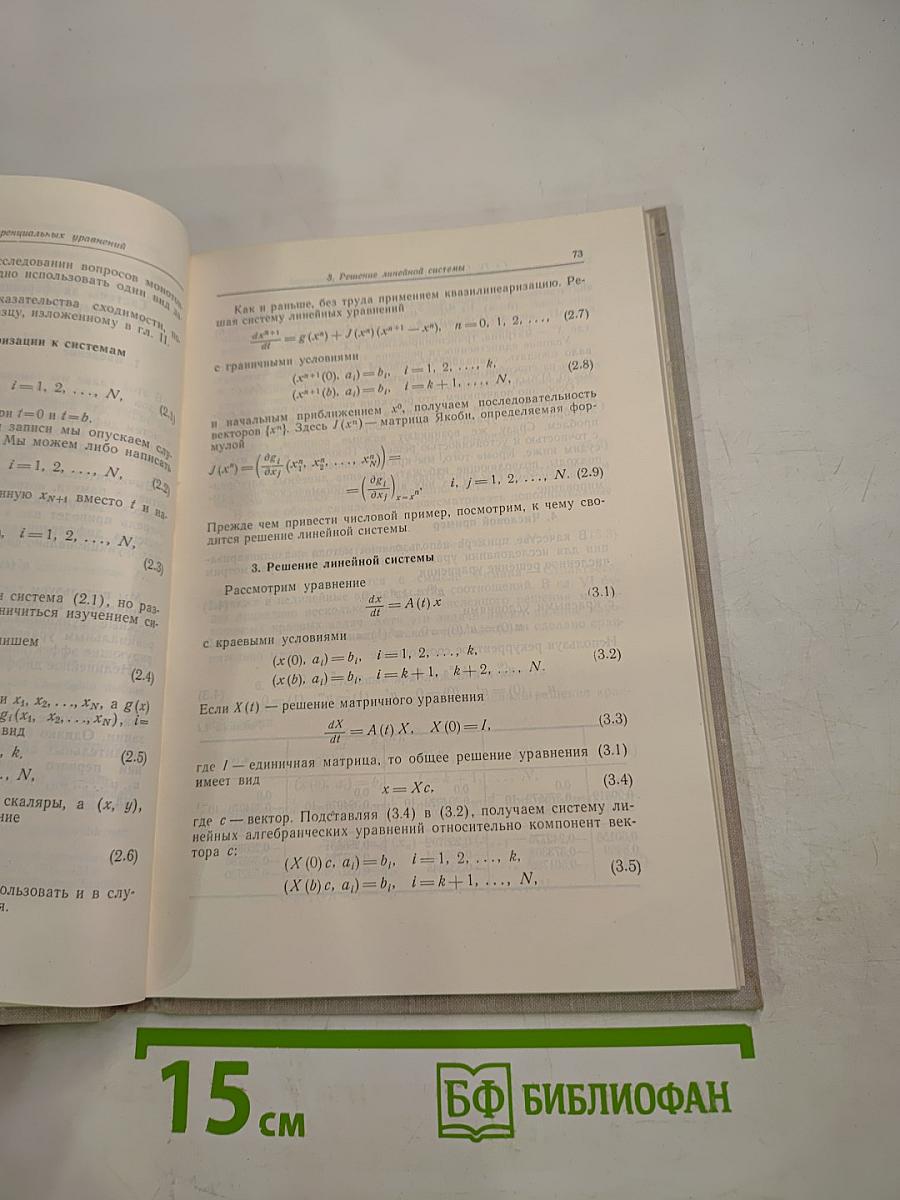 ренциальных уравнений
сследовании вопросов монотон-
дно использовать один вид за-
казательства сходимости,
азцу, изложенному в гл. II.
ризации к системам
i=1, 2, ..., N, (2.1)
ри t=0 и t=b.
записи мы опускаем слу-
Мы можем либо написать
i=1, 2, ..., N, (2.2)
нную x_{N+1} вместо t и на-
, i=1, 2, ..., N,
(2.3)
я система (2.1), но раз-
ничиться изучением си-
пишем
(2.4)
и x₁, x₂, ..., x_N, а g(x)
g_i(x₁, x₂, ..., x_N), i=
вид
, k, (2.5)
., N,
скаляры, а (x, y),
ние
(2.6)
ользовать и в слу-
я.
3. Решение линейной системы 73
Как и раньше, без труда применяем квазилинеаризацию. Ре-
шая систему линейных уравнений
dxⁿ⁺¹/dt = g(xⁿ) + J(xⁿ)(xⁿ⁺¹ — xⁿ), n=0, 1, 2, ..., (2.7)
с граничными условиями
(xⁿ⁺¹(0), a_i)=b_i, i=1, 2, ..., k,
(xⁿ⁺¹(b), a_i)=b_i, i=k+1, ..., N, (2.8)
и начальным приближением x⁰, получаем последовательность
векторов {xⁿ}. Здесь J(xⁿ) — матрица Якоби, определяемая фор-
мулой
J(xⁿ) = (∂g_i/∂x_j (x₁ⁿ, x₂ⁿ, ..., x_Nⁿ)) =
= (∂g_i/∂x_j)_{x=xⁿ}, i, j=1, 2, ..., N. (2.9)
Прежде чем привести числовой пример, посмотрим, к чему сво-
дится решение линейной системы.
3. Решение линейной системы
Рассмотрим уравнение
dx/dt = A(t) x (3.1)
с краевыми условиями
(x(0), a_i)=b_i, i=1, 2, ..., k,
(x(b), a_i)=b_i, i=k+1, k+2, ..., N. (3.2)
Если X(t) — решение матричного уравнения
dX/dt = A(t) X, X(0)=I, (3.3)
где I — единичная матрица, то общее решение уравнения (3.1)
имеет вид
x = Xc, (3.4)
где c — вектор. Подставляя (3.4) в (3.2), получаем систему ли-
нейных алгебраических уравнений относительно компонент век-
тора c:
(X(0) c, a_i)=b_i, i=1, 2, ..., k,
(X(b) c, a_i)=b_i, i=k+1, ..., N, (3.5)
15 см
БФ БИБЛИОФАН